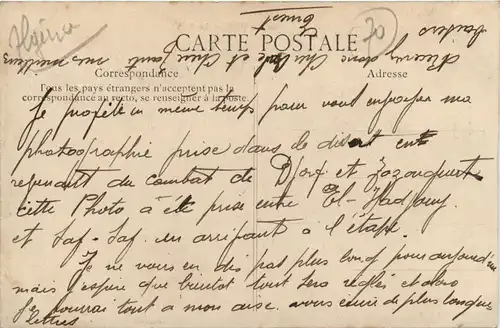 Algérie
70
CARTE POSTALE
Correspondance
Adresse
Tous les pays étrangers n'acceptent pas la
correspondance au recto, se renseigner à la poste.
Je profite en même temps pour vous envoyer ma
photographie prise dans le désert en
revenant du combat de Djorf et
cette Photo a été prise entre El-Hadjouj
et Saf-Saf en arrivant à l'étape.
Je ne vous en dis pas plus long pour aujourd'hui
mais j'espère que bientôt tout sera réglé et alors
je pourrai tout à mon aise vous écrire de plus longues
lettres
Recevez donc Cher et Chère mes meilleurs
baisers
Ernest